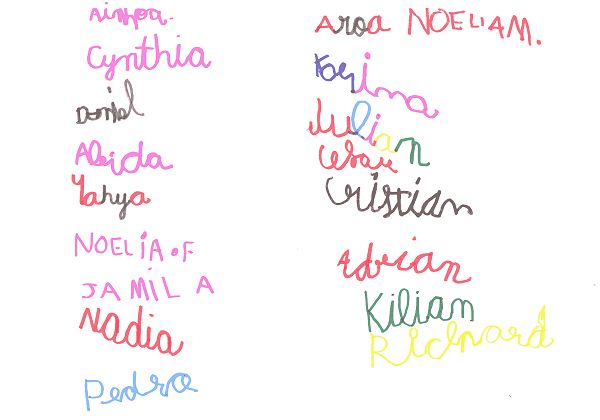 Ainhoa.
Cynthia
Daniel
Abida
Yahya
NOELIA.F
JAMILA
Nadia
Pedro
Aroa NOELIAM.
Karima
Julian
Cesar
Cristian
Adrian
Kilian
Richard